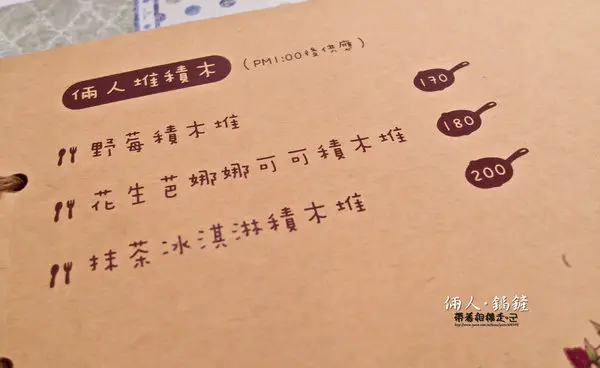 倆人堆積木 (PM1:00後供應)
野莓積木堆 170
花生芭娜娜可可積木堆 180
抹茶冰淇淋積木堆 200
倆人·鍋鏟
帶著相機走·己